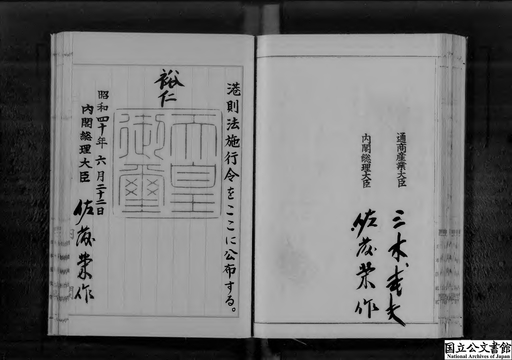 通商産業大臣
三木武夫
内閣総理大臣
佐藤榮作
港則法施行令をここに公布する。
裕仁
天皇
御璽
昭和四十年六月二十二日
内閣総理大臣
佐藤榮作
国立公文書館
National Archives of Japan